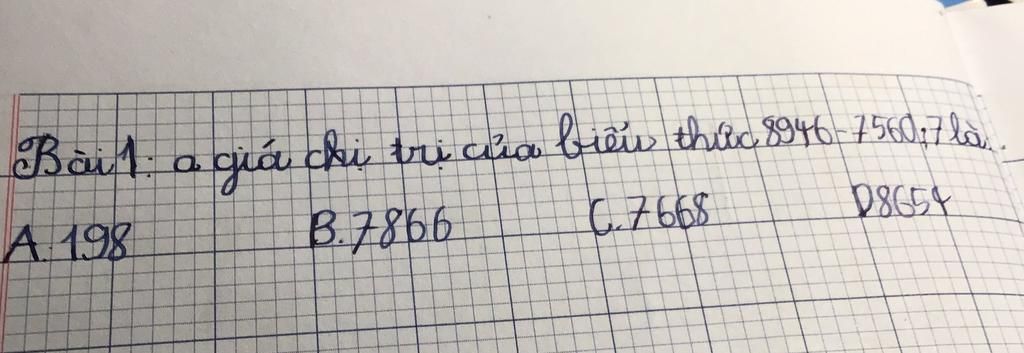 Bài 1: a giá chị trị của biểu thức 8946 - 7560 : 7 là..
A. 198 B. 7866 C. 7668 D 8654